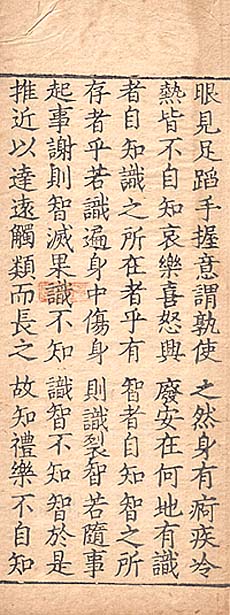 眼見足蹈手握意謂孰使之然身有疴疾冷
熱皆不自知哀樂喜怒興廢安在何地有識
者自知識之所在者乎有智者自知智之所
存者乎若識遍身中傷身則識裂智若隨事
起事謝則智滅果識不知識智不知智於是
推近以達遠觸類而長之故知禮樂不自知